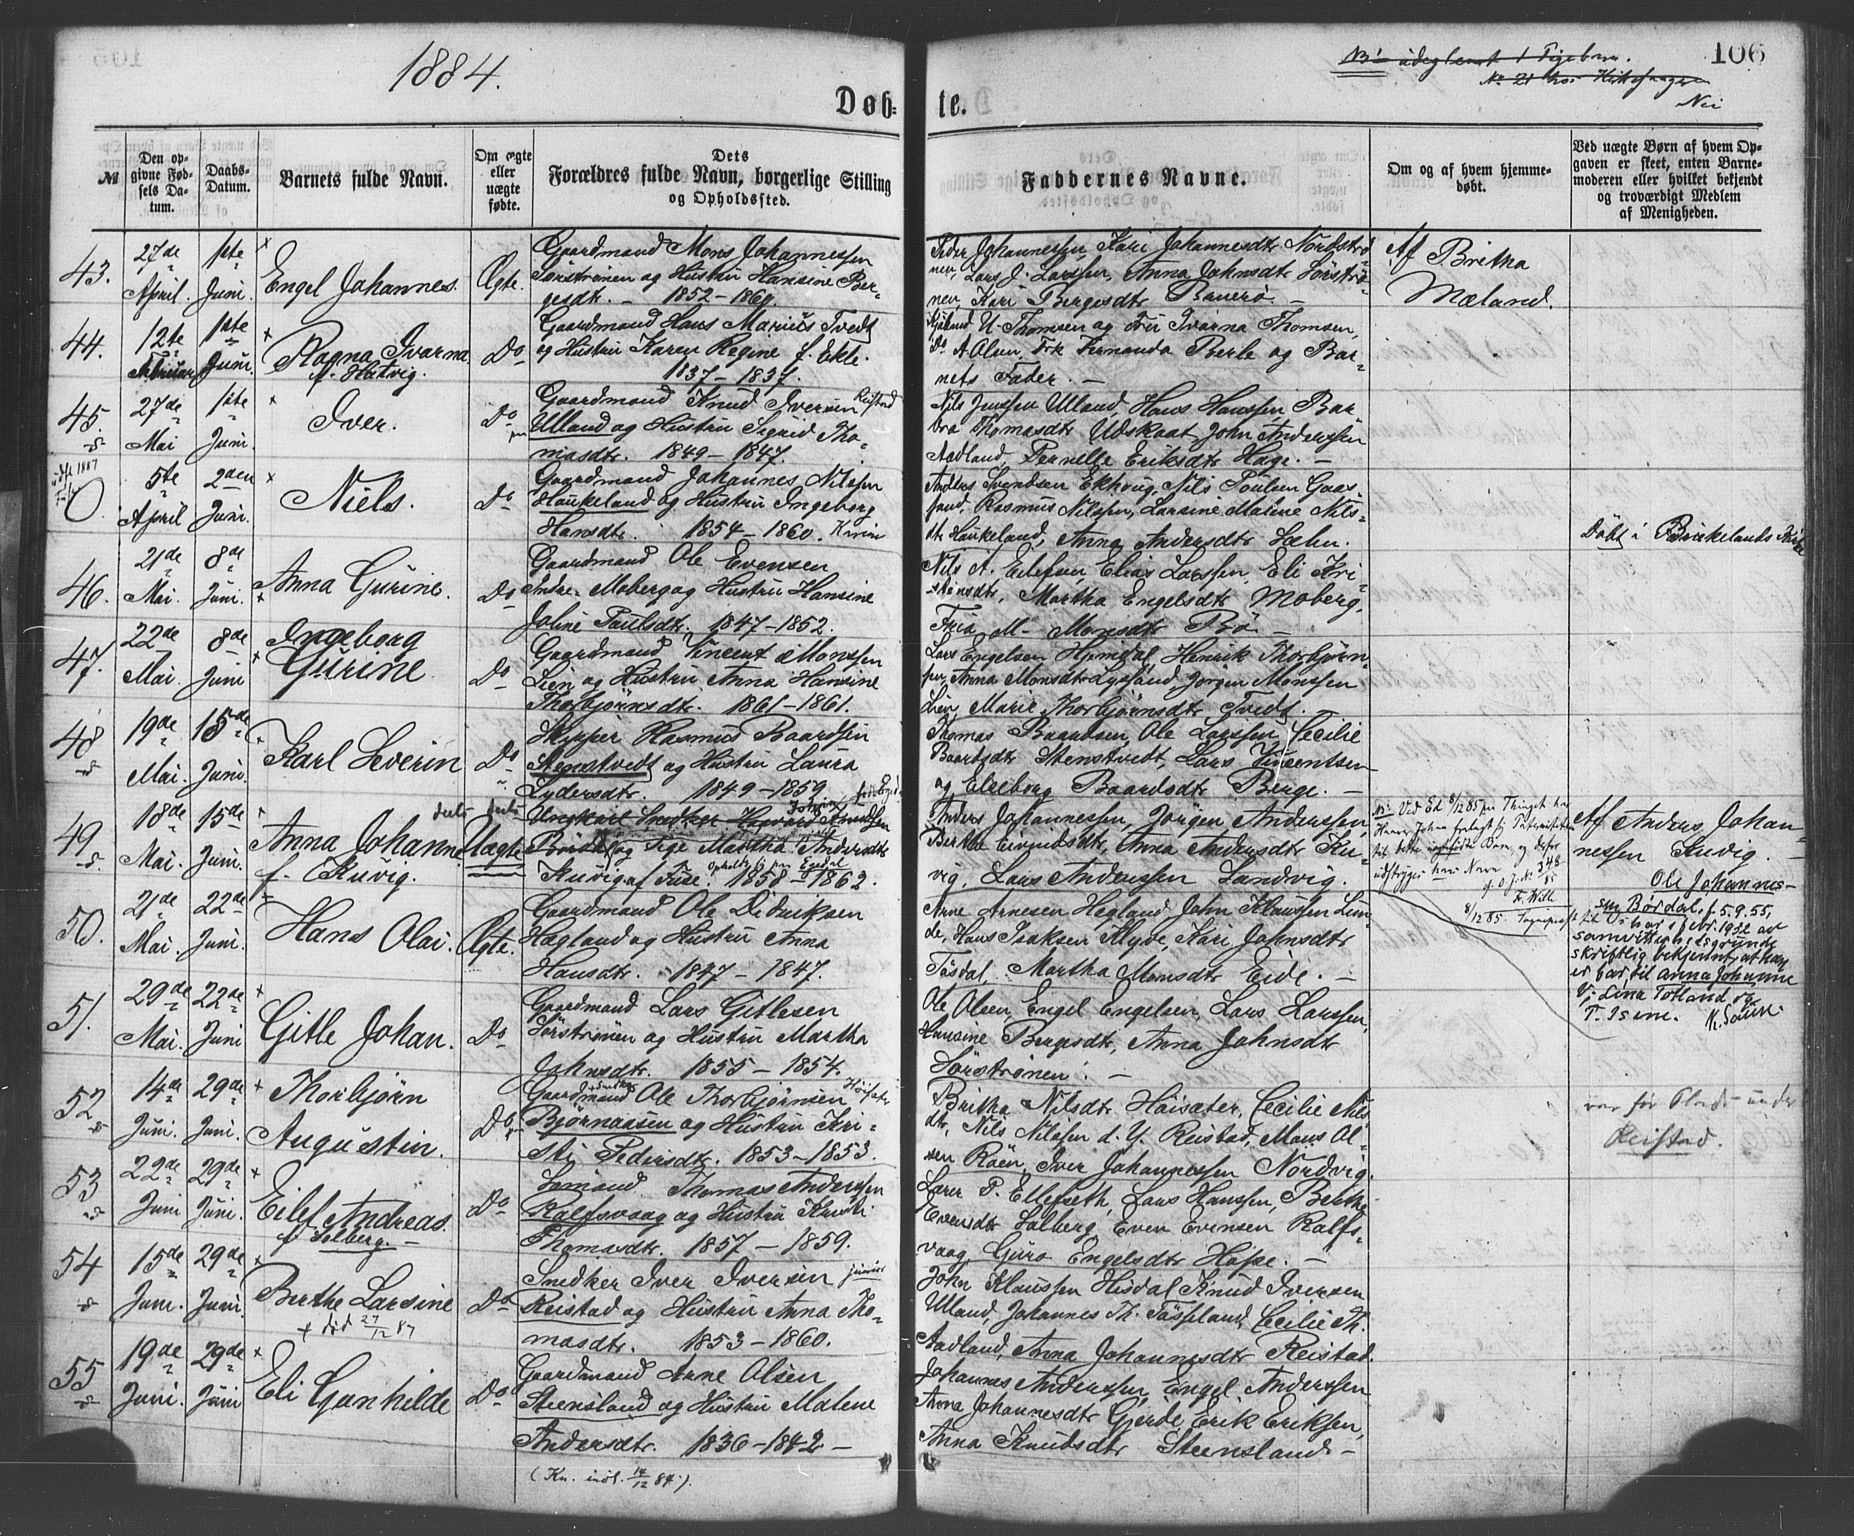 1884.
106
Døb=
te.
№
Den op-
givne Fød-
sels Da-
tum.
Daabs-
Datum.
Barnets fulde Navn.
Om ægte
eller
uægte
fødte.
Dets
Forældres fulde Navn, borgerlige Stilling
og Opholdssted.
Faddernes Navne.
Om og af hvem hjemme-
døbt.
Ved uægte Børn af hvem Op-
gaven er skeet, enten Barne-
moderen eller hvilket bekjendt
og troværdigt Medlem
af Menigheden.
43.
27de April.
1ste Juni.
Engel Johannes.
Ægte.
Gaardmand Mons Johannessen
Sørstrønen og Hustru Hansine Ber-
gesdtr. – 1852 – 1860.
Peder Johannessen, Kari Johannesdtr Nordstrø-
nen, Lars J. Larssen, Anna Johnsdtr Sørstrø-
nen, Kari Bergesdtr Banerø. –
Af Britha
Mæland.
44.
12te Februar
1ste Juni.
Ragna Ivarna
f. Hatvig.
Do
Gaardmand Hans Marius Tvedt
og Hustru Karen Regine f. Ekle.
1837 – 1837.
U. Thomsen og Fru Ivarna Thomsen,
Do A. Olsen, Frk Fernanda Berle og Bar-
nets Fader. –
45.
27de Mai
1ste Juni.
Iver.
Do
Gaardmand Knud Iversen Reistad
Ulland og Hustru Sigrid Tho-
masdtr. 1849 – 1847.
Nils Jenssen Ulland, Hans Hanssen, Bar-
bra Thomasdtr Udskaat, John Anderssen
Aadland, Pernelle Eriksdtr Hage. –
0
5te April
2den Juni.
Niels.
Do
Gaardmand Johannes Nilssen
Haukeland og Hustru Ingeborg
Hansdtr. 1854 – 1860.
Anders Svendsen Ekhoug, Nils Poulsen Gaas-
sand, Rasmus Nilssen, Larsine Malene Nils-
dtr Haukeland, Anna Andersdtr Sæln.
Døbt i Birkelands Kirke
46.
21de Mai.
8de Juni.
Anna Gurine.
Do
Gaardmand Ole Evensen
Indre Moberg og Hustru Hansine
Joline Paulsdtr. 1847 – 1852.
Nils A. Eilefsen, Elias Larssen, Eli Kri-
stensdtr, Martha Engelsdtr Moberg,
M. Monsdtr Bø –
47.
22de Mai.
8de Juni
Ingeborg
Gurine.
Do
Gaardmand Vincent Monssen
Lien og Hustru Anna Hansine
Thorbjørnsdtr. 1861 – 1861.
Lars Engelsen Hjemdal, Henrik Thorbjørn-
sen, Anna Monsdtr Lyssand, Jørgen Monssen
Lien, Marie Thorbjørnsdtr Tvedt.
48
19de Mai.
15de Juni.
Karl Severin
Do
Skipper Rasmus Baardsen
Stenstvedt og Hustru Laura
Lydersdtr. 1849 – 1859
Thomas Baardsen, Ole Larssen, Cecilie
Baardsdtr Stenstvedt, Lars Vincentsen
og Elseborg Baardsdtr Berge. –
49
18de Mai.
15de Juni.
Anna Johanne
f. Skuvig.
Uægte
Ungkarl Snedker Knudsen
og Pige Martha Andersdtr
Skuvig af Fuse. 1858 – 1862.
Anders Johannessen, Jørgen Anderssen,
Bertha Eivindsdtr, Anna Andersdtr Sku-
vig, Lars Anderssen Sandvig.
Af Anders Johan-
nessen Skuvig. –
Ole Johannes-
sen Børdal, f. 5.9.55,
har i febr. 1932 av
samvittighetsgrunde
skriftlig bekjennt, at han
er far til Anna Johanne
V: Lina Totland og
T. Isene.
50.
21de Mai.
22de Juni.
Hans Olai.
Ægte.
Gaardmand Ole Dideriksen
Hægland og Hustru Anna
Hansdtr. 1847 – 1847.
Arne Arnesen Hegland, John Klaussen Lun-
de, Hans Isaksen Klyve, Kari Johnsdtr
Tøsdal, Martha Monsdtr Eide. –
51.
29de Mai.
22de Juni
Gitle Johan.
Do
Gaardmand Lars Gitlesen
Sørstrønen og Hustru Martha
Johnsdtr. 1855 – 1854.
Ole Olsen, Engel Engelsen, Lars Larssen,
Hansine Bergesdtr, Anna Johnsdtr
Sørstrønen. –
52
14de Juni.
29de Juni.
Thorbjørn
Augustin.
Do
Gaardmand Ole Thorbjørnsen
Bjørnaasen og Hustru Kri-
sti Pedersdtr. 1853 – 1853.
Britha Nilsdtr Høisæter, Cecilie Nils-
dtr, Nils Nilssen d. Y. Reistad, Mons Ol-
sen Røen, Iver Johannessen Nordvig.
var før Plads under
Reistad.
53
22de Juni
29de Juni.
Eilef Andreas.
f. Solberg. –
Do
Sømand Thomas Anderssen
Ralfsvaag og Hustru Kristi
Thomasdtr. 1857 – 1859.
Lars P. Ellefseth, Lars Hanssen, Britha
Evensdtr Solberg, Even Evensen Ralfs-
vaag, Guro Engelsdtr Høse. –
54
15de Juni.
29de Juni.
Berthe Larsine
+ død 27/12 87
Do
Snedker Iver Iversen junior
Reistad og Hustru Anna Tho-
masdtr. 1853 – 1860.
John Klaussen Hisdal, Knud Iversen
Ulland, Johannes Th. Tøsseland, Cecilie Th.
Aadland, Anna Johannesdtr Reistad.
55
19de Juni.
29de Juni
Eli Gunhilde
Do
Gaardmand Arne Olsen
Steensland og Hustru Malene
Andersdtr. 1836 – 1842 –
(Kn. indl. 14/12 84.)
Johannes Anderssen, Engel Anderssen
Anna Johannesdtr Gjerde, Erik Eriksen,
Anna Knudsdtr Steensland –